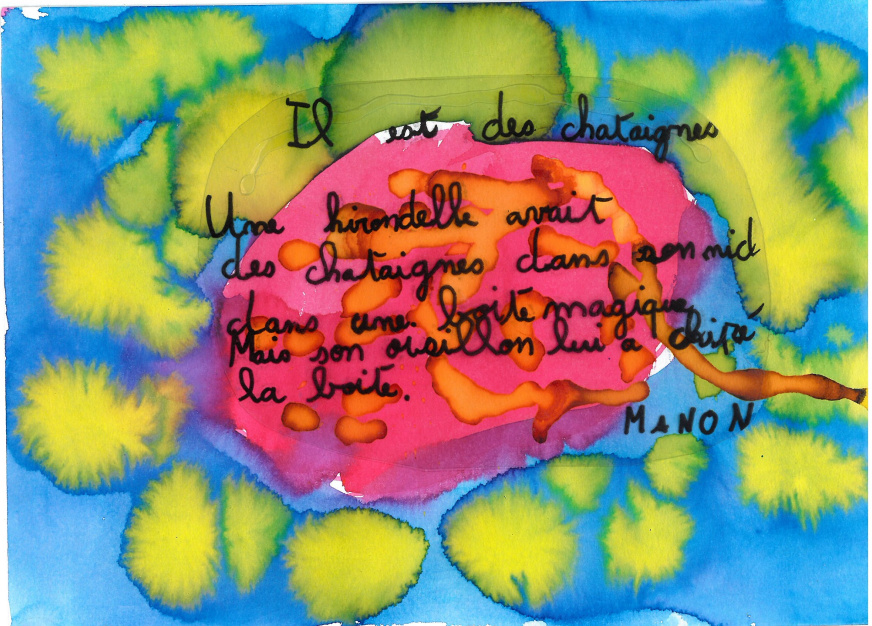 Il est des chataignes
Une hirondelle avait
des chataignes dans son nid
dans une boite magique
Mais son oisillon lui a chipé
la boite.
MANON